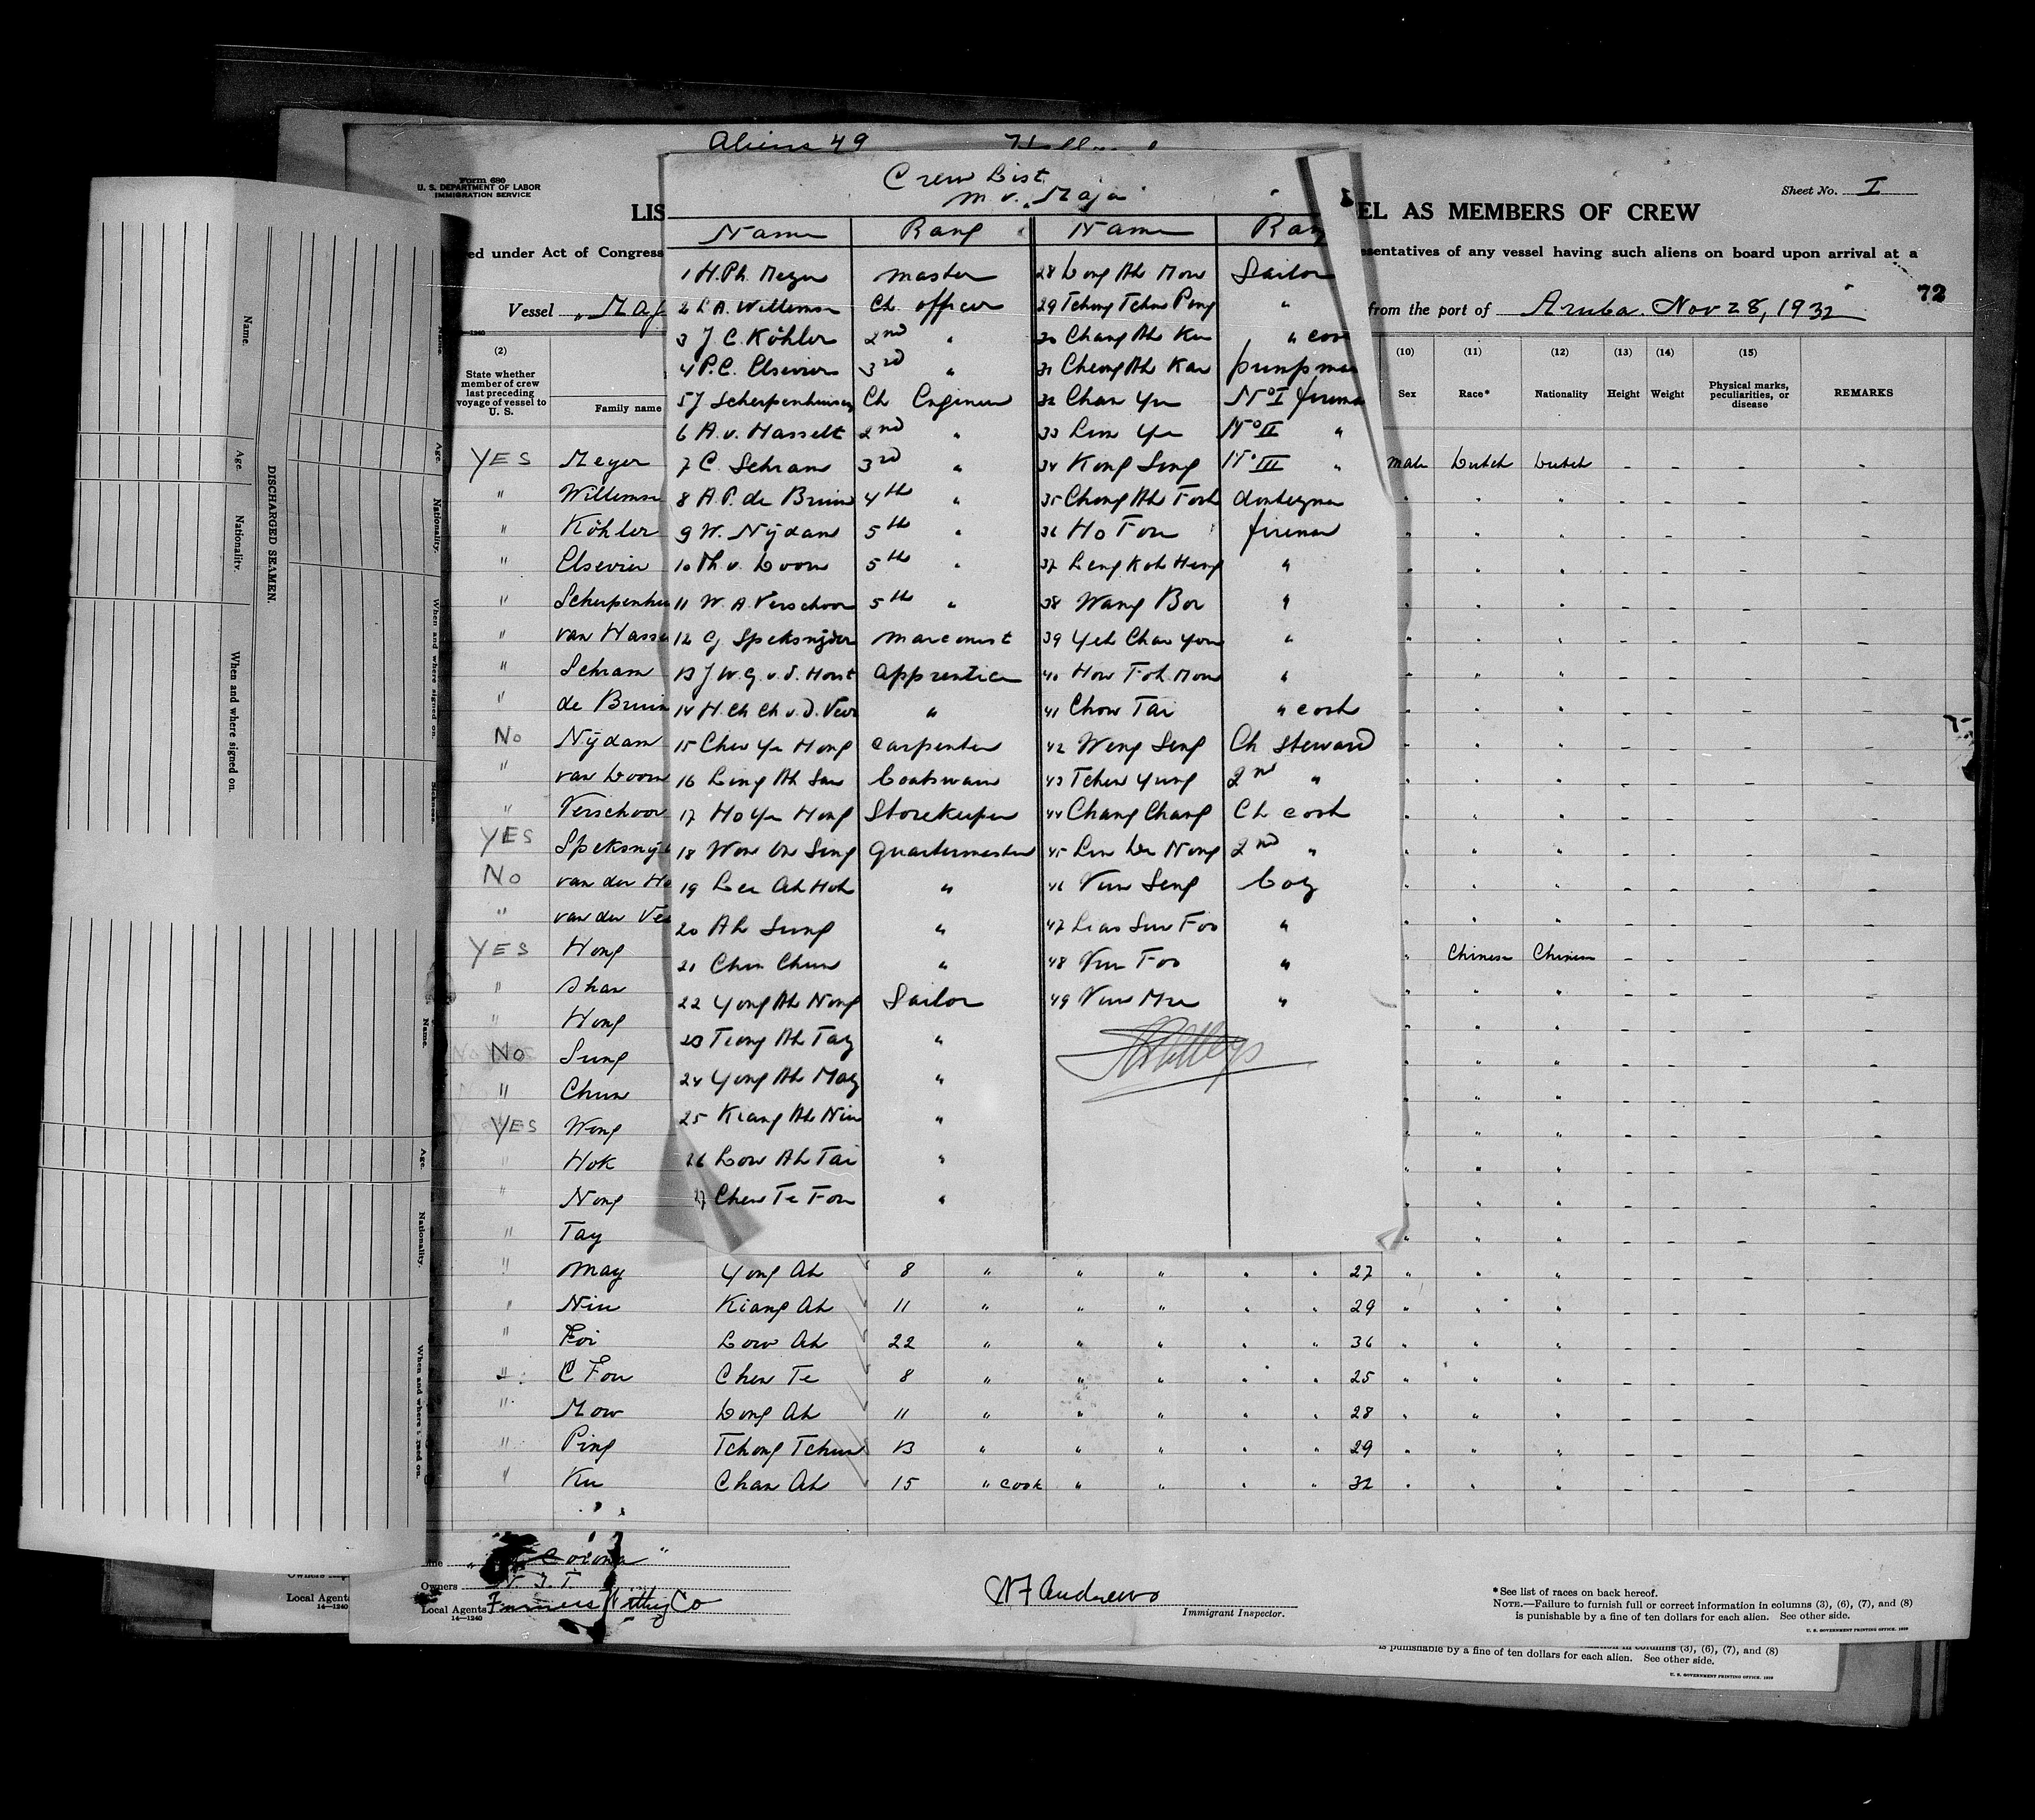 Aliens 49
Form 680
U. S. DEPARTMENT OF LABOR
IMMIGRATION SERVICE
Crew List
m.v. "Maja"
Sheet No. I
LIS
EL AS MEMBERS OF CREW
ed under Act of Congress
sentatives of any vessel having such aliens on board upon arrival at a
Vessel "Maj
from the port of Aruba. Nov 28, 1932
72
Name Rang Name Rang
1 H. Ph. Meyer master 28 Long Ah Mow Sailor
2 L A. Willemse Ch. officer 29 Tchong Tchun Ping "
3 J C. Köhler 2nd " 30 Chang Ah Ku " cook
4 P. C. Elsevier 3rd " 31 Cheong Ah Kan pumpman
5 J Scherpenhuisen Ch Engineer 32 Chan Yu No I fireman
6 A. v. Hasselt 2nd " 33 Lim Ye No II "
7 C. Schram 3rd " 34 Kong Sing No III "
8 A. P. de Bruin 4th " 35 Chong Ah Foch donkeyman
9 W. Nijdam 5th " 36 Ho Fou fireman
10 Th. v. Loon 5th " 37 Leng Koh Heng "
11 W. A. Verschoor 5th " 38 Wang Bor "
12 G Speksnijder marconist 39 Yeh Chan You "
13 J. W. G. v. d. Horst apprentice 40 How Foh Mow "
14 H. Ch Ch v. d. Veer " 41 Chow Tai " cook
15 Chew Ye Hong carpenter 42 Weng Seng Ch Steward
16 Ling Ah San boatswain 43 Tchen Yung 2nd "
17 Ho Ye Hong Storekeeper 44 Chang Chang Ch cook
18 Won Un Sing quartermaster 45 Lin De Nong 2nd "
19 Lee Ah Hok " 46 Vun Seng boy
20 Ah Sung " 47 Liao Sun Foo "
21 Chin Chun " 48 Vun Foo "
22 Yong Ah Nong Sailor 49 Vun Mee "
23 Tiong Ah Tay "
24 Yong Ah May "
25 Kiang Ah Niu "
26 Low Ah Tai "
27 Chen Te Fou "
(2)
State whether
member of crew
last preceding
voyage of vessel to
U. S.
Family name
(10) (11) (12) (13) (14) (15)
Sex Race* Nationality Height Weight Physical marks, peculiarities, or disease REMARKS
YES Meyer male Dutch Dutch - - - -
" Willemse " " " - - - -
" Köhler " " " - - - -
" Elsevier " " " - - - -
" Scherpenhu " " " - - - -
" van Hasse " " " - - - -
" Schram " " " - - - -
" de Bruin " " " - - - -
No Nijdam " " " - - - -
" van Loon " " " - - - -
" Verschoor " " " - - - -
YES Speksnij " " " - - - -
No van der Ho " " " - - - -
" van der Vee " " " - - - -
YES Hong " Chinese Chinese - - - -
" Shan " " " - - - -
" Hong " " " - - - -
No Sung " " " - - - -
" Chun " " " - - - -
YES Weng " " " - - - -
" Hok " " " - - - -
" Nong " " " - - - -
" Tay " " " - - - -
" May Yong Ah 8 " " " " " 27 " " " - - - -
" Niu Kiang Ah 11 " " " " " 29 " " " - - - -
" Foi Low Ah 22 " " " " " 36 " " " - - - -
" C Fou Chen Te 8 " " " " " 25 " " " - - - -
" Mow Long Ah 11 " " " " " 28 " " " - - - -
" Ping Tchong Tchun 13 " " " " " 29 " " " - - - -
" Ku Chan Ah 15 " cook " " " " 32 " " " - - - -
DISCHARGED SEAMEN.
Name. Age. Nationality. When and where signed on.
Name. Age. Nationality. When and where signed on. Seamen.
Name. Age. Nationality. When and where signed on.
"Corona"
Owners N. I. T.
Local Agents Furness Withy Co
14—1240
W F Andrews
Immigrant Inspector.
*See list of races on back hereof.
NOTE.—Failure to furnish full or correct information in columns (3), (6), (7), and (8)
is punishable by a fine of ten dollars for each alien. See other side.
U. S. GOVERNMENT PRINTING OFFICE. 1929
Owners
Local Agents
14—1240
is punishable by a fine of ten dollars for each alien. See other side.
U. S. GOVERNMENT PRINTING OFFICE. 1929